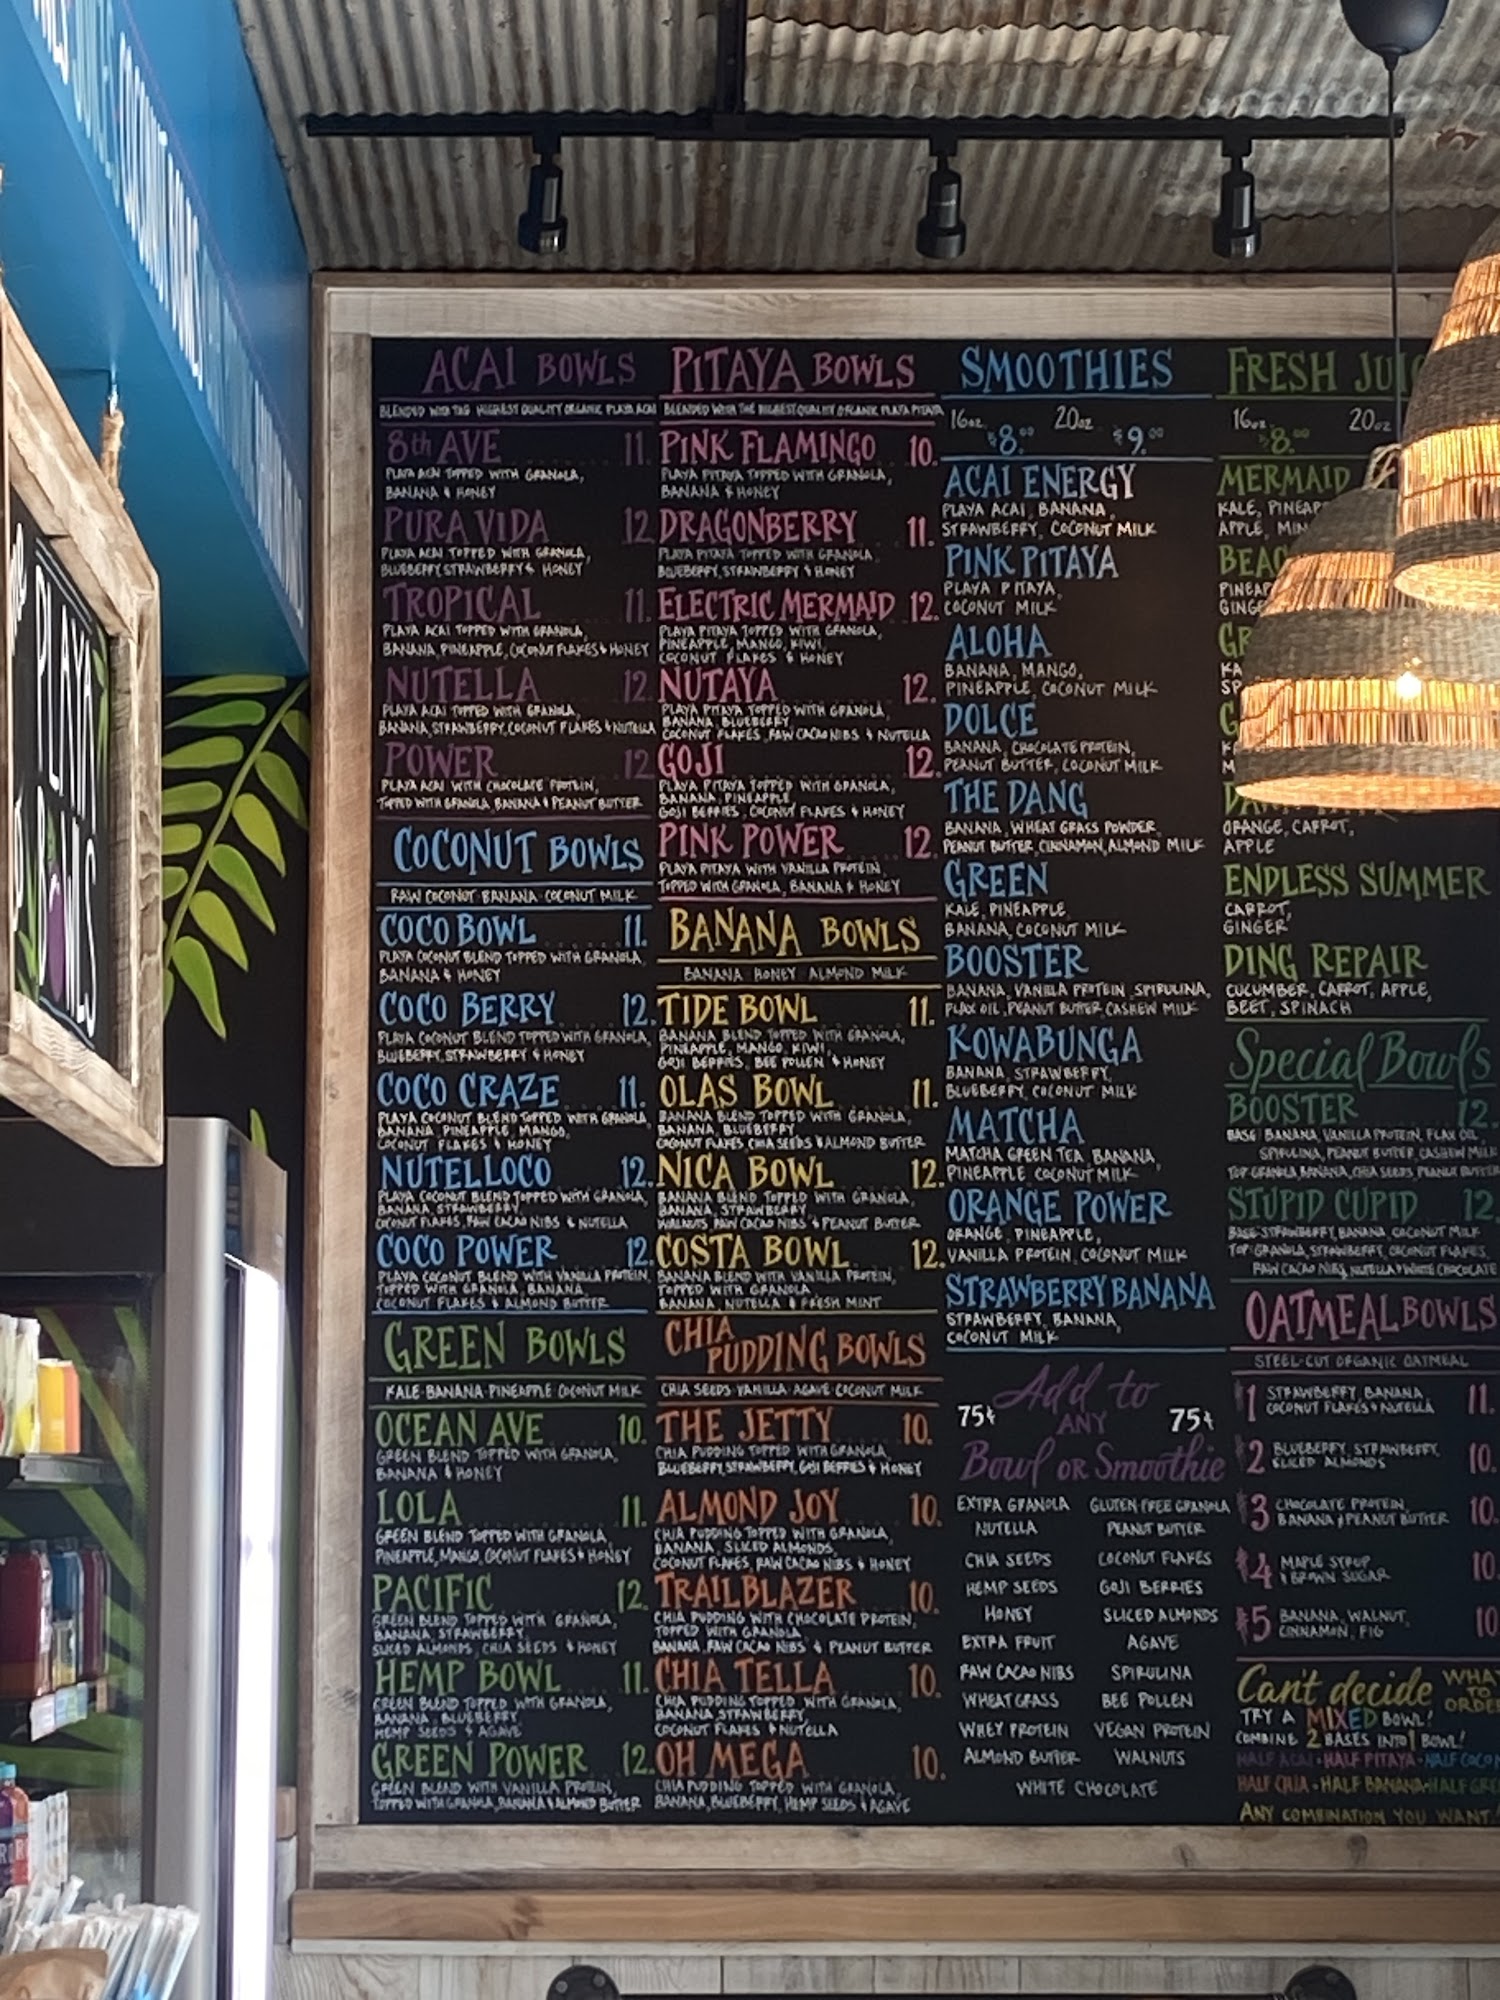 PLAYA
BOWLS
ACAI BOWLS
BLENDED WITH THE HIGHEST QUALITY ORGANIC PLAYA ACAI
8th AVE 11.
PLAYA ACAI TOPPED WITH GRANOLA,
BANANA & HONEY
PURA VIDA 12.
PLAYA ACAI TOPPED WITH GRANOLA,
BLUEBERRY, STRAWBERRY & HONEY
TROPICAL 11.
PLAYA ACAI TOPPED WITH GRANOLA,
BANANA, PINEAPPLE, COCONUT FLAKES & HONEY
NUTELLA 12.
PLAYA ACAI TOPPED WITH GRANOLA,
BANANA, STRAWBERRY, COCONUT FLAKES & NUTELLA
POWER 12.
PLAYA ACAI WITH CHOCOLATE PROTEIN,
TOPPED WITH GRANOLA, BANANA & PEANUT BUTTER
COCONUT BOWLS
RAW COCONUT · BANANA · COCONUT MILK
COCO BOWL 11.
PLAYA COCONUT BLEND TOPPED WITH GRANOLA,
BANANA & HONEY
COCO BERRY 12.
PLAYA COCONUT BLEND TOPPED WITH GRANOLA,
BLUEBERRY, STRAWBERRY & HONEY
COCO CRAZE 11.
PLAYA COCONUT BLEND TOPPED WITH GRANOLA,
BANANA, PINEAPPLE, MANGO,
COCONUT FLAKES & HONEY
NUTELLOCO 12.
PLAYA COCONUT BLEND TOPPED WITH GRANOLA,
BANANA, STRAWBERRY,
COCONUT FLAKES, RAW CACAO NIBS & NUTELLA
COCO POWER 12.
PLAYA COCONUT BLEND WITH VANILLA PROTEIN,
TOPPED WITH GRANOLA, BANANA,
COCONUT FLAKES & ALMOND BUTTER
GREEN BOWLS
KALE · BANANA · PINEAPPLE · COCONUT MILK
OCEAN AVE 10.
GREEN BLEND TOPPED WITH GRANOLA,
BANANA & HONEY
LOLA 11.
GREEN BLEND TOPPED WITH GRANOLA,
PINEAPPLE, MANGO, COCONUT FLAKES & HONEY
PACIFIC 12.
GREEN BLEND TOPPED WITH GRANOLA,
BANANA, STRAWBERRY,
SLICED ALMONDS, CHIA SEEDS & HONEY
HEMP BOWL 11.
GREEN BLEND TOPPED WITH GRANOLA,
BANANA, BLUEBERRY,
HEMP SEEDS & AGAVE
GREEN POWER 12.
GREEN BLEND WITH VANILLA PROTEIN,
TOPPED WITH GRANOLA, BANANA & ALMOND BUTTER
PITAYA BOWLS
BLENDED WITH THE HIGHEST QUALITY ORGANIC PLAYA PITAYA
PINK FLAMINGO 10.
PLAYA PITAYA TOPPED WITH GRANOLA,
BANANA & HONEY
DRAGONBERRY 11.
PLAYA PITAYA TOPPED WITH GRANOLA,
BLUEBERRY, STRAWBERRY & HONEY
ELECTRIC MERMAID 12.
PLAYA PITAYA TOPPED WITH GRANOLA,
PINEAPPLE, MANGO, KIWI,
COCONUT FLAKES & HONEY
NUTAYA 12.
PLAYA PITAYA TOPPED WITH GRANOLA,
BANANA, BLUEBERRY,
COCONUT FLAKES, RAW CACAO NIBS & NUTELLA
GOJI 12.
PLAYA PITAYA TOPPED WITH GRANOLA,
BANANA, PINEAPPLE,
GOJI BERRIES, COCONUT FLAKES & HONEY
PINK POWER 12.
PLAYA PITAYA WITH VANILLA PROTEIN,
TOPPED WITH GRANOLA, BANANA & HONEY
BANANA BOWLS
BANANA HONEY ALMOND MILK
TIDE BOWL 11.
BANANA BLEND TOPPED WITH GRANOLA,
PINEAPPLE, MANGO, KIWI,
GOJI BERRIES, BEE POLLEN & HONEY
OLAS BOWL 11.
BANANA BLEND TOPPED WITH GRANOLA,
BANANA, BLUEBERRY,
COCONUT FLAKES, CHIA SEEDS & ALMOND BUTTER
NICA BOWL 12.
BANANA BLEND TOPPED WITH GRANOLA,
BANANA, STRAWBERRY,
WALNUTS, RAW CACAO NIBS & PEANUT BUTTER
COSTA BOWL 12.
BANANA BLEND WITH VANILLA PROTEIN,
TOPPED WITH GRANOLA,
BANANA, NUTELLA & FRESH MINT
CHIA
PUDDING BOWLS
CHIA SEEDS · VANILLA · AGAVE · COCONUT MILK
THE JETTY 10.
CHIA PUDDING TOPPED WITH GRANOLA,
BLUEBERRY, STRAWBERRY, GOJI BERRIES & HONEY
ALMOND JOY 10.
CHIA PUDDING TOPPED WITH GRANOLA,
BANANA, SLICED ALMONDS,
COCONUT FLAKES, RAW CACAO NIBS & HONEY
TRAILBLAZER 10.
CHIA PUDDING WITH CHOCOLATE PROTEIN,
TOPPED WITH GRANOLA
BANANA, RAW CACAO NIBS & PEANUT BUTTER
CHIA TELLA 10.
CHIA PUDDING TOPPED WITH GRANOLA,
BANANA, STRAWBERRY,
COCONUT FLAKES & NUTELLA
OH MEGA 10.
CHIA PUDDING TOPPED WITH GRANOLA,
BANANA, BLUEBERRY, HEMP SEEDS & AGAVE
SMOOTHIES
16oz. 20oz
$8.00 $9.00
ACAI ENERGY
PLAYA ACAI, BANANA,
STRAWBERRY, COCONUT MILK
PINK PITAYA
PLAYA PITAYA,
COCONUT MILK
ALOHA
BANANA, MANGO,
PINEAPPLE, COCONUT MILK
DOLCE
BANANA, CHOCOLATE PROTEIN,
PEANUT BUTTER, COCONUT MILK
THE DANG
BANANA, WHEAT GRASS POWDER,
PEANUT BUTTER, CINNAMON, ALMOND MILK
GREEN
KALE, PINEAPPLE,
BANANA, COCONUT MILK
BOOSTER
BANANA, VANILLA PROTEIN, SPIRULINA,
FLAX OIL, PEANUT BUTTER, CASHEW MILK
KOWABUNGA
BANANA, STRAWBERRY,
BLUEBERRY, COCONUT MILK
MATCHA
MATCHA GREEN TEA, BANANA,
PINEAPPLE COCONUT MILK
ORANGE POWER
ORANGE, PINEAPPLE,
VANILLA PROTEIN, COCONUT MILK
STRAWBERRY BANANA
STRAWBERRY, BANANA,
COCONUT MILK
Add to
75¢ ANY 75¢
Bowl OR Smoothie
EXTRA GRANOLA GLUTEN FREE GRANOLA
NUTELLA PEANUT BUTTER
CHIA SEEDS COCONUT FLAKES
HEMP SEEDS GOJI BERRIES
HONEY SLICED ALMONDS
EXTRA FRUIT AGAVE
RAW CACAO NIBS SPIRULINA
WHEATGRASS BEE POLLEN
WHEY PROTEIN VEGAN PROTEIN
ALMOND BUTTER WALNUTS
WHITE CHOCOLATE
FRESH
16oz. 20oz
$8.00
MERMAID
KALE,
APPLE,
ORANGE, CARROT,
APPLE
ENDLESS SUMMER
CARROT,
GINGER
DING REPAIR
CUCUMBER, CARROT, APPLE,
BEET, SPINACH
Special Bowls
BOOSTER 12.
BASE: BANANA, VANILLA PROTEIN, FLAX OIL,
SPIRULINA, PEANUT BUTTER, CASHEW MILK
TOP: GRANOLA, BANANA, CHIA SEEDS, PEANUT BUTTER
STUPID CUPID 12.
BASE: STRAWBERRY, BANANA, COCONUT MILK
TOP: GRANOLA, STRAWBERRY, COCONUT FLAKES,
RAW CACAO NIBS, NUTELLA & WHITE CHOCOLATE
OATMEAL BOWLS
STEEL-CUT ORGANIC OATMEAL
#1 STRAWBERRY, BANANA, 11.
COCONUT FLAKES & NUTELLA
#2 BLUEBERRY, STRAWBERRY, 10.
SLICED ALMONDS
#3 CHOCOLATE PROTEIN, 10.
BANANA & PEANUT BUTTER
#4 MAPLE SYRUP 10.
& BROWN SUGAR
#5 BANANA, WALNUT, 10
CINNAMON, FIG
Can't decide
TO
TRY A MIXED BOWL!
COMBINE 2 BASES INTO 1 BOWL!
HALF ACAI · HALF PITAYA · HALF
HALF CHIA · HALF BANANA · HALF
ANY COMBINATION YOU WANT